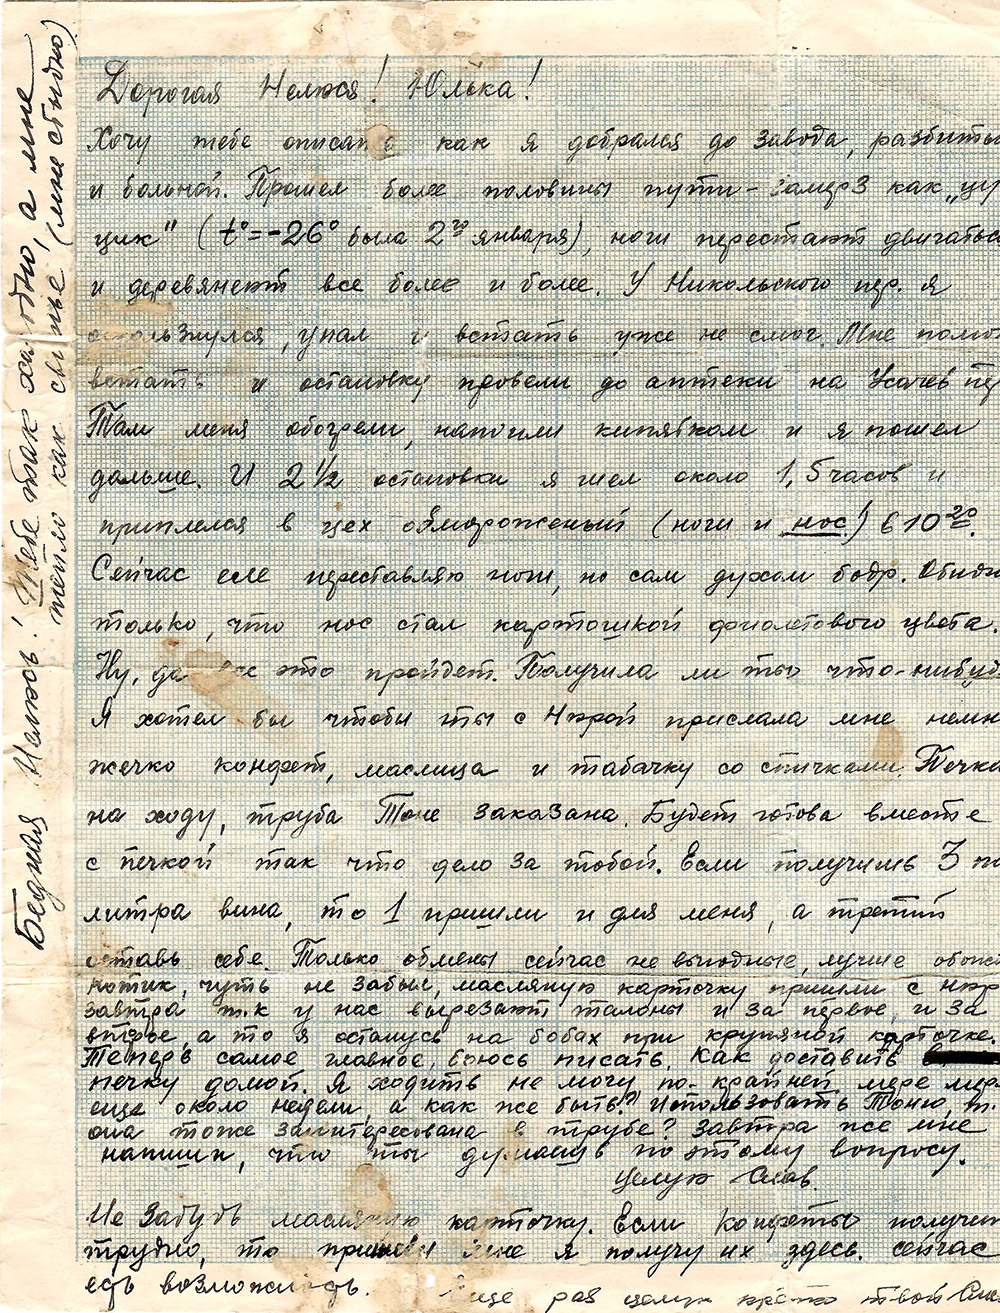 Дорогая Нелюся! Юлька!
Хочу тебе описать как я добрался до завода, разбиты
и больной. Прошел более половины пути – замерз как „цу
цик" (t°= -26° была 2го января), ноги перестают двигаться
и деревянеют все более и более. У Никольского пер. я
поскользнулся, упал и встать уже не смог. Мне помог
встать и остановку провели до аптеки на Усачев пер
Там меня обогрели, напоили кипятком и я пошел
дальше. И 2 1/2 остановки я шел около 1,5 часов и
приплелся в цех обмороженный (ноги и нос!) в 10 20.
Сейчас еле переставляю ноги, но сам духом бодр. Обидн
только, что нос стал картошкой фиолетового цвета.
Ну, да все это пройдет. Получила ли ты что-нибуд
Я хотел бы чтобы ты с Нюрой прислала мне немн
жечко конфет, маслица и табачку со спичками. Печка
на ходу, труба Тоне заказана. Будет готова вместе
с печкой так что дело за тобой. Если получишь 3 по
литра вина, то 1 пришли и для меня, а третий
оставь себе. Только обмены сейчас не выгодные, лучше обож
Котик, чуть не забыл, масляную карточку пришли с Нюр
завтра т.к у нас вырезают талоны и за первое и за
второе, а то я останусь на бобах при крупяной карточке.
Теперь самое главное, боюсь писать. Как доставить
печку домой. Я ходить не могу по-крайней мере
еще около недели, а как же быть? Использовать Тоню, т.
она тоже заинтересована в трубе? Завтра же мне
напиши, что ты думаешь по этому вопросу.
Целую Слав.
Не забудь масляную карточку. Если конфеты получит
трудно, то пришли мне я получу их здесь. сейчас
есь возможность.
Еще раз целую твой Сла
Бедная Нелюсь! Тебе так холодно, а мне
тепло как свинье! (мне стыдно)